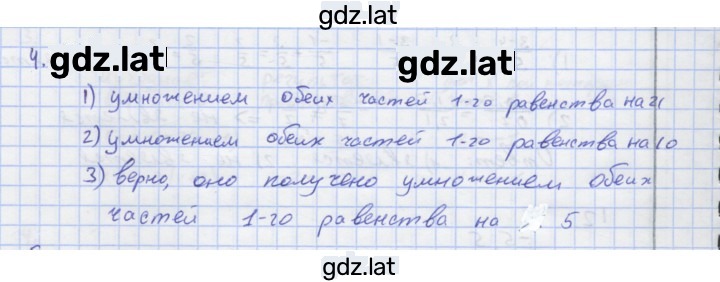 gdz.lat
4.
gdz.lat
gdz.lat
1) умножением обеих частей 1-го равенства на 21
2) умножением обеих частей 1-го равенства на 10
3) верно, оно получено умножением обеих
частей 1-го равенства на 5
gdz.lat